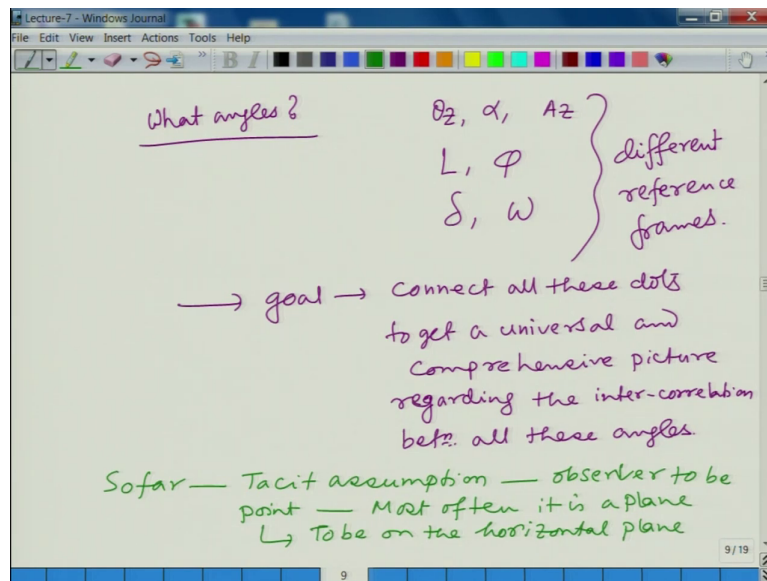 Lecture-7 - Windows Journal
File Edit View Insert Actions Tools Help
B I
What angles?
θz, α, Az
L, φ
δ, ω
different
reference
frames.
→ goal → connect all these dots
to get a universal and
comprehensive picture
regarding the inter-correlation
betn. all these angles.
Sofar — Tacit assumption — observer to be
point — Most often it is a plane
↳ To be on the horizontal plane
9/19
9